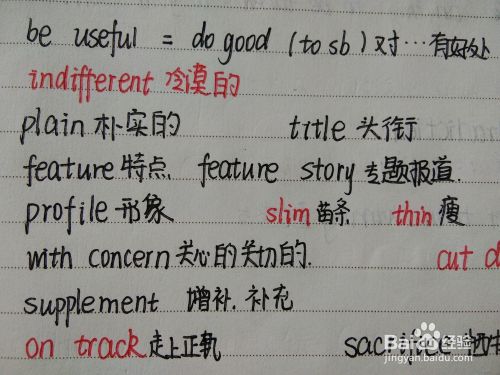 be useful = do good (to sb) 对…有好处
indifferent 冷漠的
plain 朴实的 title 头衔
feature 特点 feature story 专题报道.
profile 形象 slim 苗条 thin 瘦
with concern 关心的 关切的. cut d
supplement 增补. 补充
on track 走上正轨 sacrifice 牺牲
Baidu 经验
jingyan.baidu.com